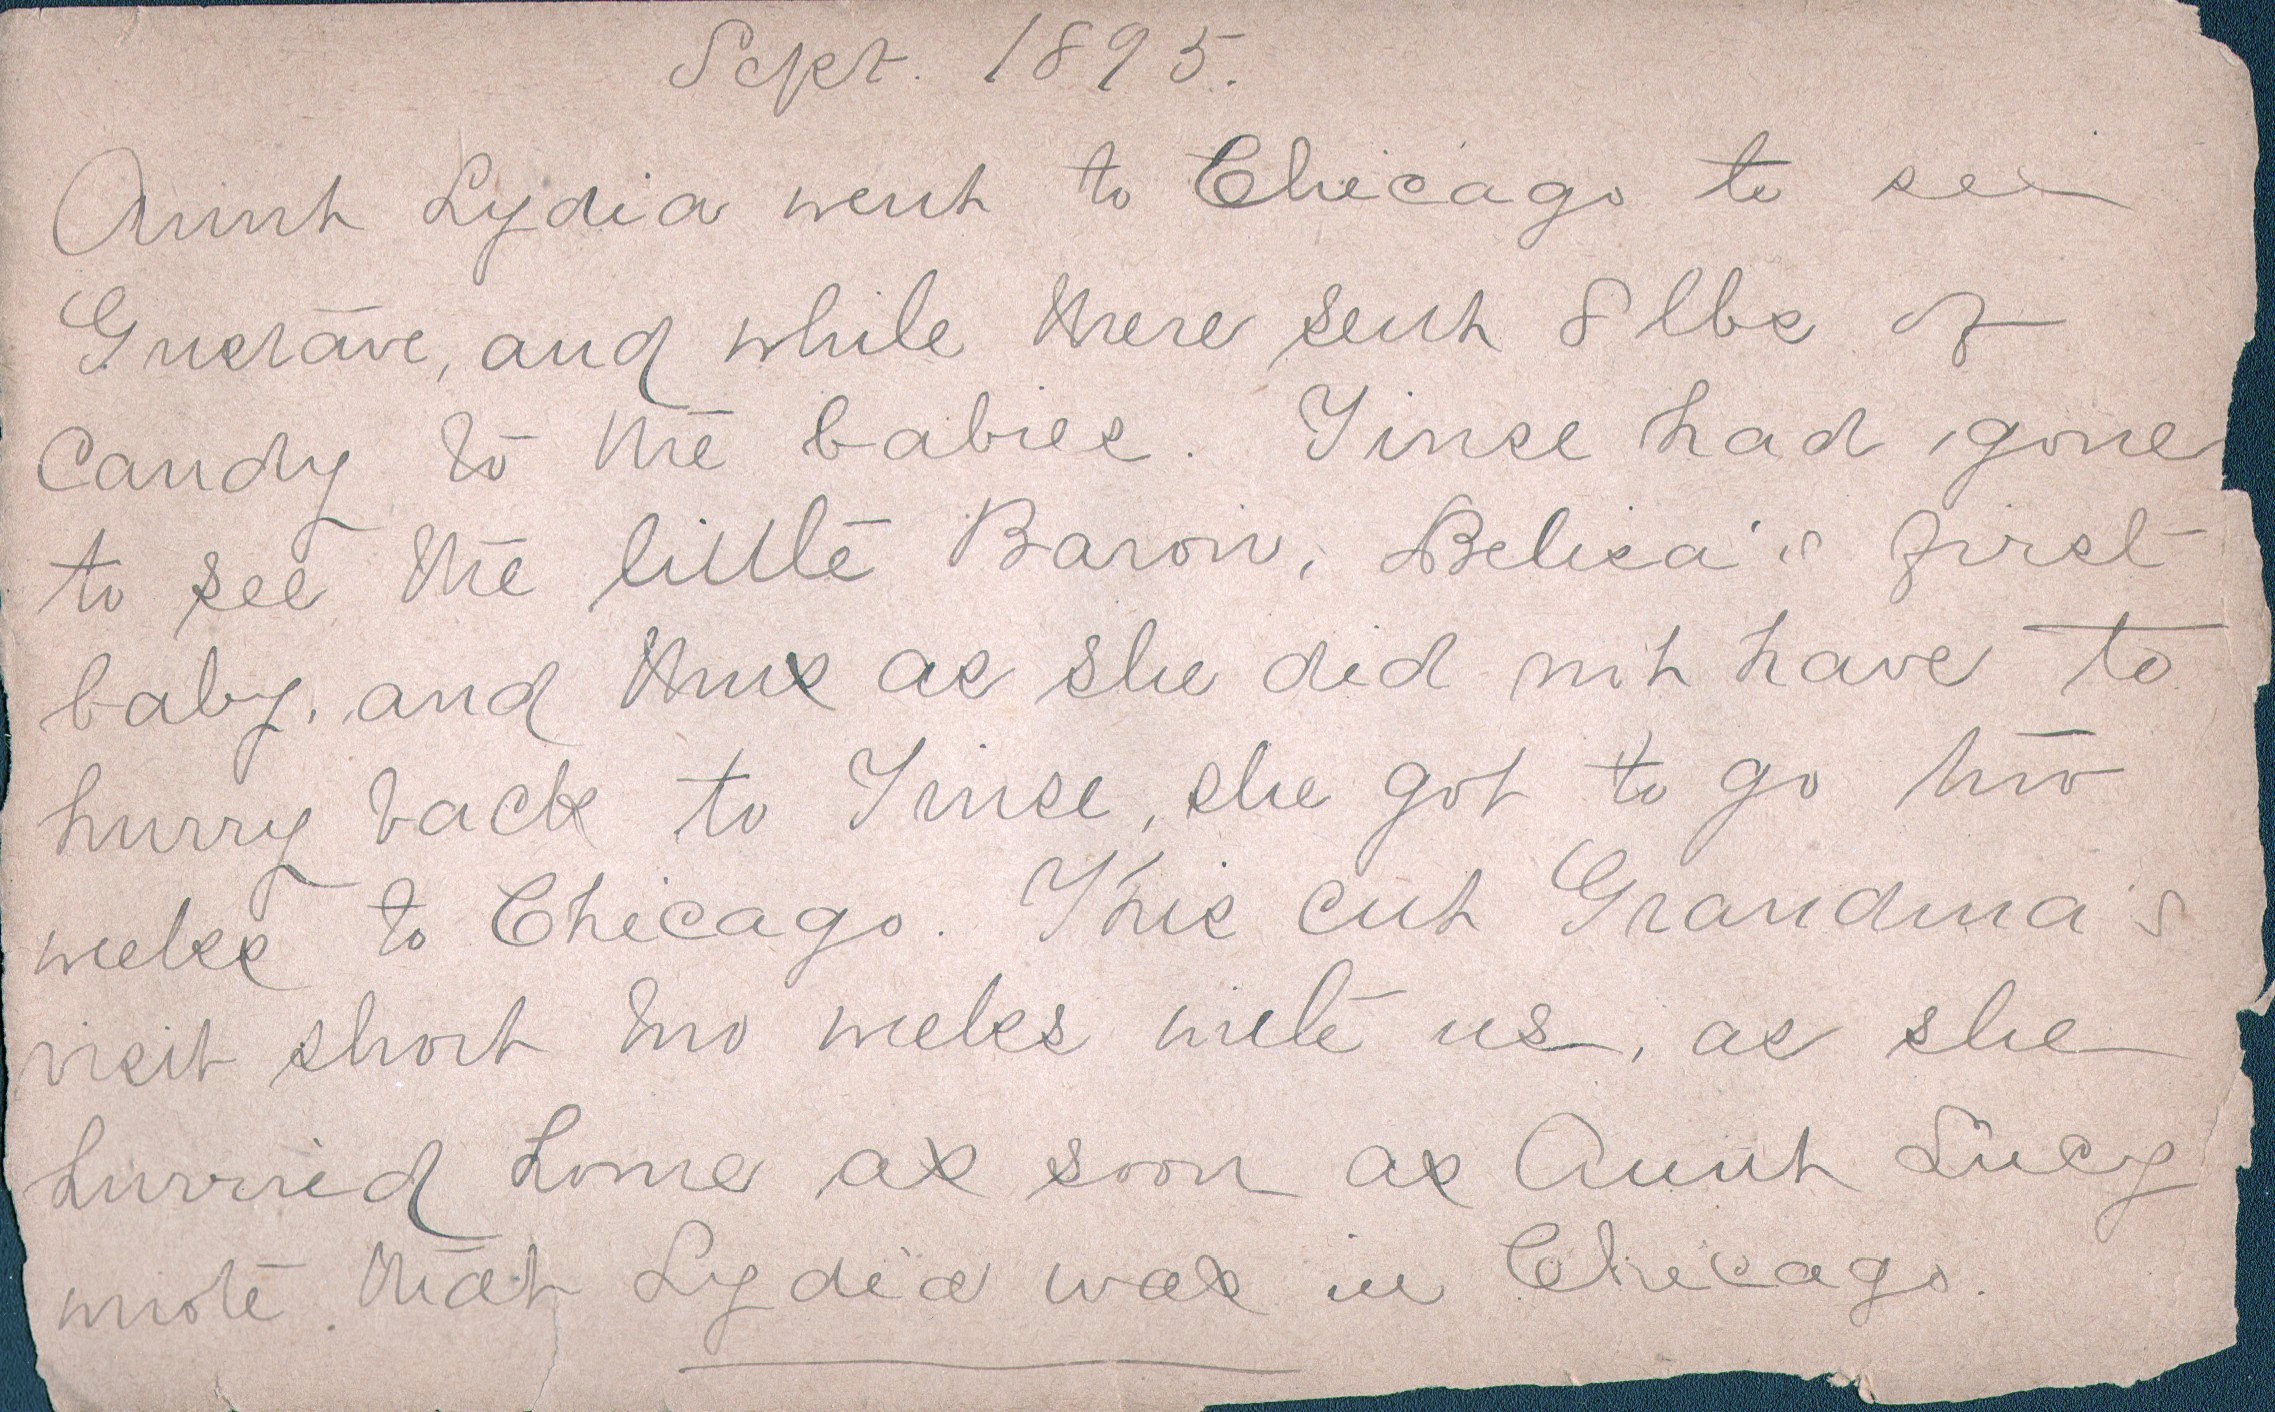 Sept. 1895.
Aunt Lydia went to Chicago to see
Gustave, and while there sent 8 lbs of
candy to the babies. Tinse had gone
to see the little Baron, Belisa's first
baby, and thus as she did not have to
hurry back to Tinse, she got to go two
weeks to Chicago. This cut Grandma's
visit short two weeks with us, as she
hurried home as soon as Aunt Lucy
wrote that Lydia was in Chicago.